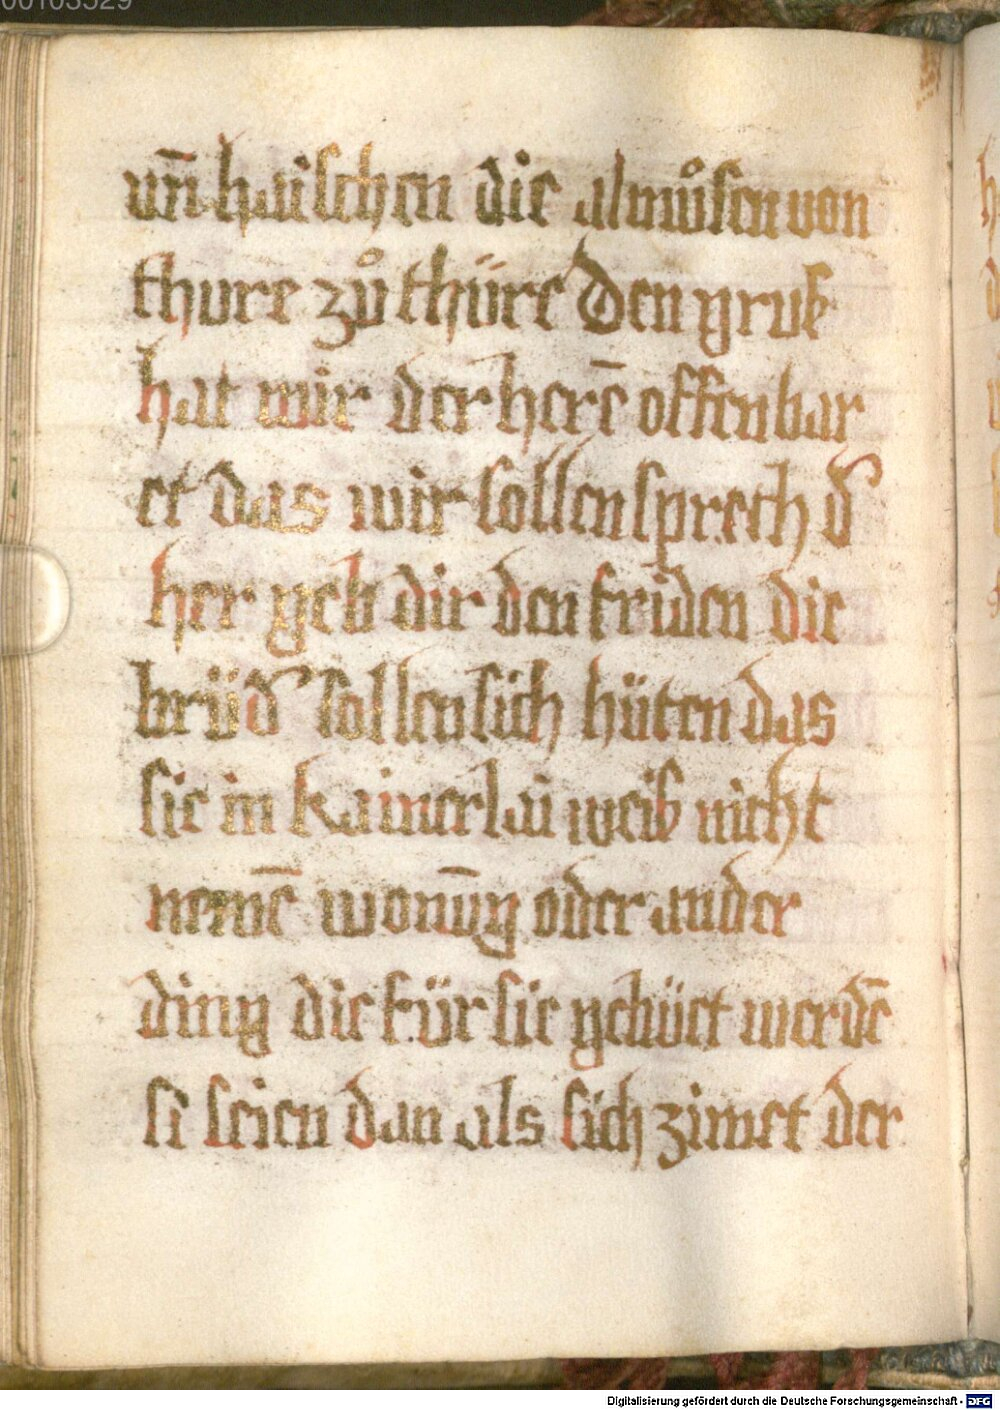 00103529
un̄ haischen die almůsen von
thure zů thüre Den gruß
hat mir der herē offenbar
et das wir sollen sprech d͛
her geb dir den friden die
brüd͛ sollen sich hüten das
sie in kainerlai weiß nicht
nemē wonūg oder ander
ding die für sie gebüet werdē
si seien dan als sich zimet der
Digitalisierung gefördert durch die Deutsche Forschungsgemeinschaft - DFG